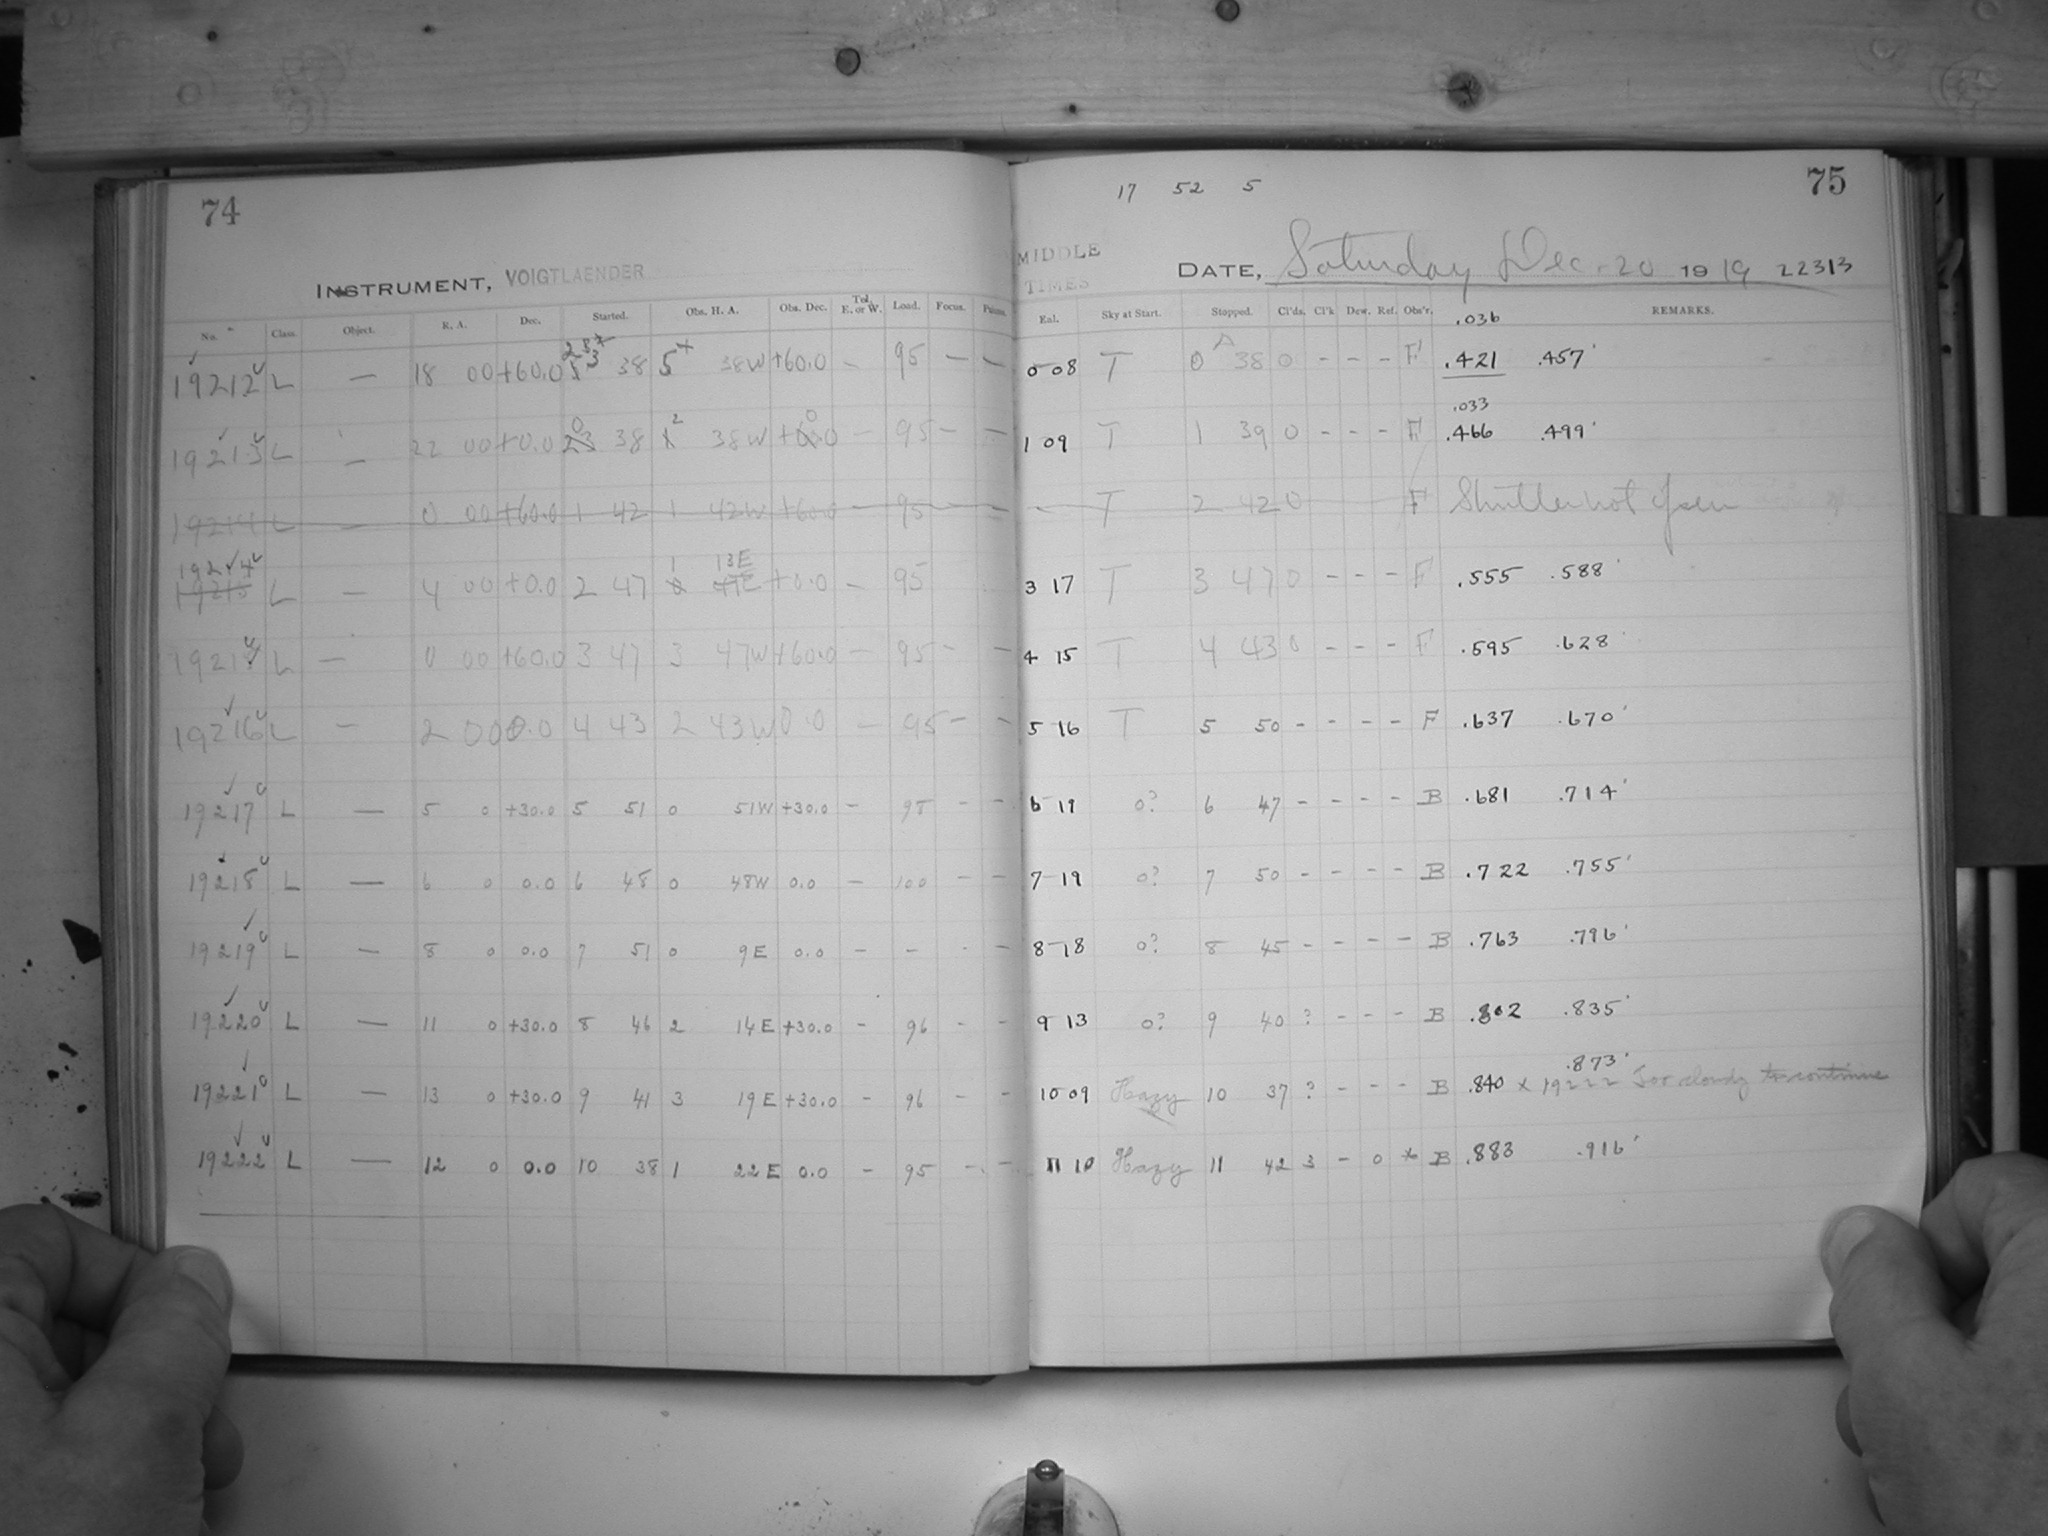 74
INSTRUMENT, VOIGTLAENDER
No. Class. Object. R. A. Dec. Started. Obs. H. A. Obs. Dec. Tel. E. or W. Load. Focus.
19212 L — 18 00 +60.0 23 38 5 38W +60.0 — 95 — —
19213 L — 22 00 +0.0 0 38 2 38W +0.0 — 95 — —
19214 L — 0 00 +60.0 1 42 1 42W +60.0 — 95 —
19214 L — 4 00 +0.0 2 47 1 13E +0.0 — 95
19215 L — 0 00 +60.0 3 47 3 47W +60.0 — 95 — —
19216 L — 2 00 0.0 4 43 2 43W 0.0 — 95 — —
19217 L — 5 0 +30.0 5 51 0 51W +30.0 — 95 — —
19218 L — 6 0 0.0 6 48 0 48W 0.0 — 100 — —
19219 L — 8 0 0.0 7 51 0 9E 0.0 — — - —
19220 L — 11 0 +30.0 8 46 2 14E +30.0 — 96 — —
19221 L — 13 0 +30.0 9 41 3 19E +30.0 — 96 — —
19222 L — 12 0 0.0 10 38 1 22E 0.0 — 95 — —
17 52 5
75
MIDDLE TIMES
DATE, Saturday Dec. 20 1919 22313
Sky at Start. Stopped. Cl'ds. Cl'k Dew. Ref. Obs'r. REMARKS.
.036
0 08 T 0 38 0 - - - F .421 .457
.033
1 09 T 1 39 0 - - - F .466 .499
— T 2 42 0 F Shutter not open
3 17 T 3 47 0 - - - F .555 .588
4 15 T 4 43 0 - - - F .595 .628
5 16 T 5 50 - - - - F .637 .670
6 19 0? 6 47 - - - - B .681 .714
7 19 0? 7 50 - - - - B .722 .755
8 18 0? 8 45 - - - - B .763 .796
9 13 0? 9 40 ? - - - B .802 .835
.873
10 09 Hazy 10 37 ? - - - B .840 x 19222 Too cloudy to continue
11 10 Hazy 11 42 3 - 0 * B .883 .916